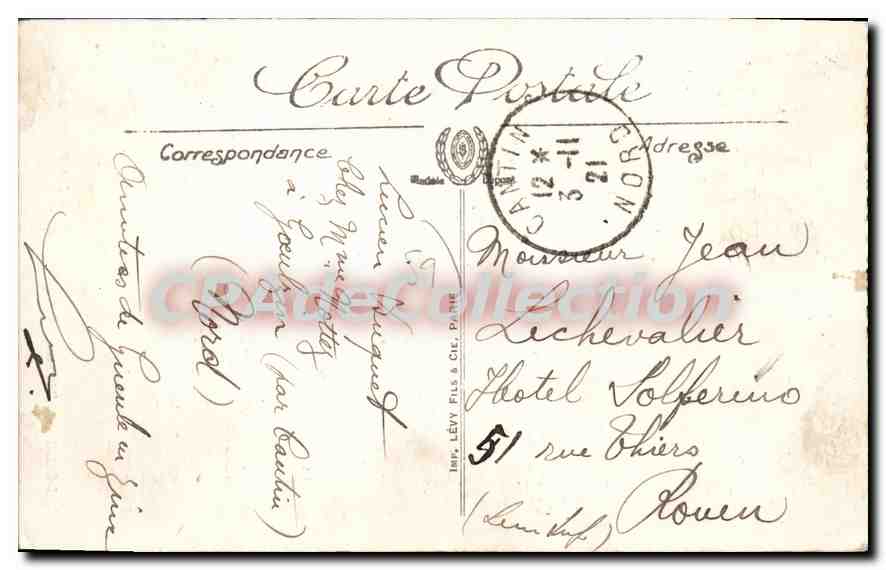 Carte Postale
Correspondance
Adresse
Modèle Déposé
CANTIN NORD
12 *
3 -11
21
Lucien Huguet
chez Mme Wottez
à Gœulzin (par Cantin)
(Nord)
Amitiés de
IMP. LÉVY FILS & CIE, PARIS
Monsieur Jean
Lechevalier
Hotel Solferino
51 rue Thiers
Rouen
(Seine Inf)
CPAdeCollection